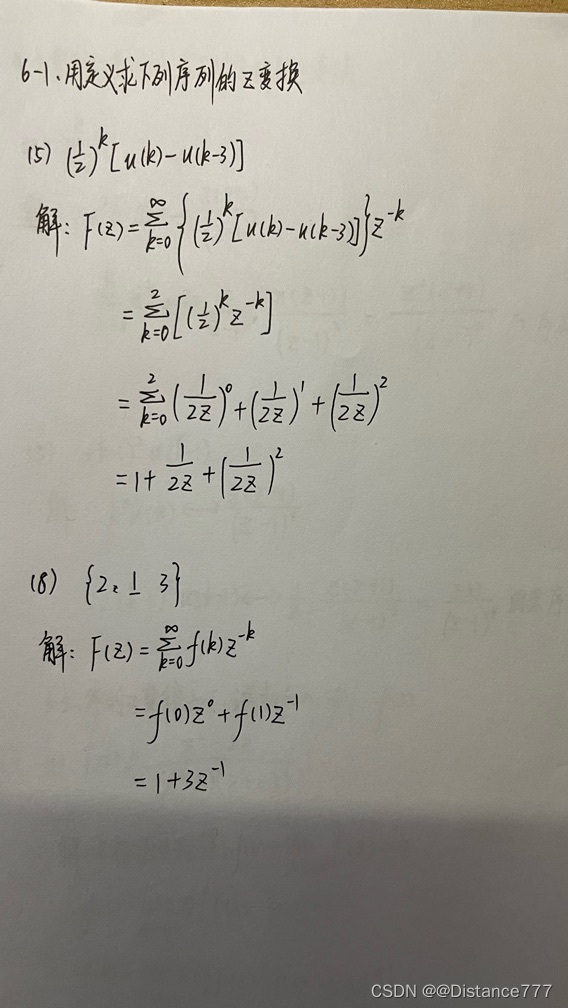 6-1、用定义求下列序列的Z变换
(5) (1/2)^k [u(k)-u(k-3)]
解: F(z)=∑_{k=0}^{∞} {(1/2)^k [u(k)-u(k-3)]} z^{-k}
=∑_{k=0}^{2} [(1/2)^k z^{-k}]
=∑_{k=0}^{2} (1/2z)^0+(1/2z)^1+(1/2z)^2
=1+1/2z+(1/2z)^2
(8) {2, 1̲ 3}
解: F(z)=∑_{k=0}^{∞} f(k)z^{-k}
=f(0)z^0+f(1)z^{-1}
=1+3z^{-1}
CSDN @@Distance777